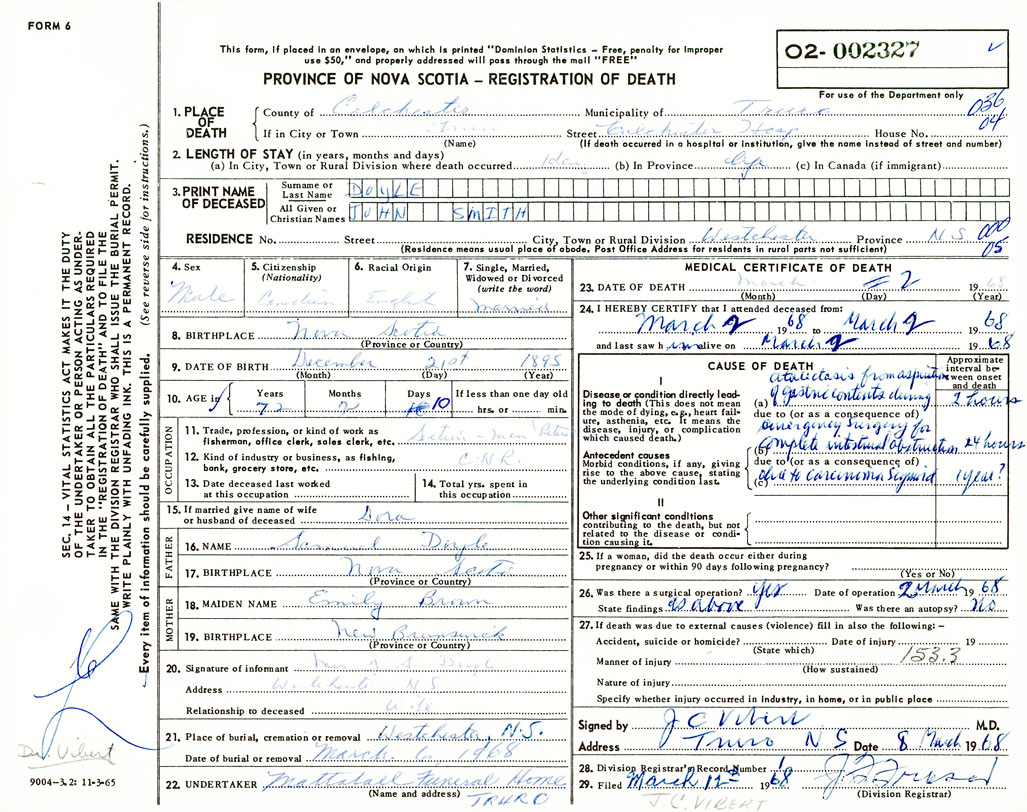 FORM 6
This form, if placed in an envelope, on which is printed "Dominion Statistics – Free, penalty for improper
use $50," and properly addressed will pass through the mail "FREE"
PROVINCE OF NOVA SCOTIA – REGISTRATION OF DEATH
O2- 002327
For use of the Department only
036
04
1. PLACE OF DEATH
County of Colchester Municipality of Truro
If in City or Town Truro Street Colchester Hosp House No.
(Name) (If death occurred in a hospital or institution, give the name instead of street and number)
2. LENGTH OF STAY (in years, months and days)
(a) In City, Town or Rural Division where death occurred 1 day (b) In Province life (c) In Canada (if immigrant)
3. PRINT NAME OF DECEASED
Surname or Last Name DOYLE
All Given or Christian Names JOHN SMITH
RESIDENCE No. Street City, Town or Rural Division Westchester Province N.S
000
05
(Residence means usual place of abode. Post Office Address for residents in rural parts not sufficient)
4. Sex
Male
5. Citizenship
(Nationality)
Canadian
6. Racial Origin
English
7. Single, Married,
Widowed or Divorced
(write the word)
married
8. BIRTHPLACE Nova Scotia
(Province or Country)
9. DATE OF BIRTH December 21st 1895
(Month) (Day) (Year)
10. AGE in Years Months Days If less than one day old
72 2 10 hrs. or min.
OCCUPATION
11. Trade, profession, or kind of work as
fisherman, office clerk, sales clerk, etc. Section-man
12. Kind of industry or business, as fishing,
bank, grocery store, etc. C.N.R.
13. Date deceased last worked
at this occupation
14. Total yrs. spent in
this occupation
15. If married give name of wife
or husband of deceased Dora
FATHER
16. NAME Samuel Doyle
17. BIRTHPLACE Nova Scotia
(Province or Country)
MOTHER
18. MAIDEN NAME Emily Brown
19. BIRTHPLACE New Brunswick
(Province or Country)
20. Signature of informant Mrs J S Doyle
Address W. chester N.S
Relationship to deceased Wife
21. Place of burial, cremation or removal Westchester, N.S.
Date of burial or removal March 6, 1968
22. UNDERTAKER Mattatall Funeral Home
(Name and address) TRURO
MEDICAL CERTIFICATE OF DEATH
23. DATE OF DEATH March 2 1968
(Month) (Day) (Year)
24. I HEREBY CERTIFY that I attended deceased from:
March 2 1968 to March 2 1968
and last saw him alive on March 2 1968
CAUSE OF DEATH
Approximate
interval be-
tween onset
and death
I
Disease or condition directly lead-
ing to death (This does not mean
the mode of dying, e.g., heart fail-
ure, asthenia, etc. It means the
disease, injury, or complication
which caused death.)
atalectasis from aspiration
(a) of gastric contents during 2 hours
due to (or as a consequence of)
emergency surgery for
Antecedent causes
Morbid conditions, if any, giving
rise to the above cause, stating
the underlying condition last.
(b) complete intestinal obstruction 24 hours
due to (or as a consequence of)
(c) due to carcinoma Sigmoid 1 year?
II
Other significant conditions
contributing to the death, but not
related to the disease or condi-
tion causing it.
25. If a woman, did the death occur either during
pregnancy or within 90 days following pregnancy?
(Yes or No)
26. Was there a surgical operation? yes Date of operation 2 March 1968
State findings as above Was there an autopsy? No
27. If death was due to external causes (violence) fill in also the following: –
Accident, suicide or homicide? Date of injury 19
(State which)
153.3
Manner of injury
(How sustained)
Nature of injury
Specify whether injury occurred in industry, in home, or in public place
Signed by J C Vibert M.D.
Address Truro N S Date 8 March 1968
28. Division Registrar's Record Number
29. Filed March 12th 1968
(Division Registrar)
J.C. VIBERT
SEC. 14 – VITAL STATISTICS ACT MAKES IT THE DUTY
OF THE UNDERTAKER OR PERSON ACTING AS UNDER-
TAKER TO OBTAIN ALL THE PARTICULARS REQUIRED
IN THE "REGISTRATION OF DEATH" AND TO FILE THE
SAME WITH THE DIVISION REGISTRAR WHO SHALL ISSUE THE BURIAL PERMIT.
WRITE PLAINLY WITH UNFADING INK. THIS IS A PERMANENT RECORD.
Every item of information should be carefully supplied. (See reverse side for instructions.)
Dr. Vibert
9004–3.2: 11-3-65